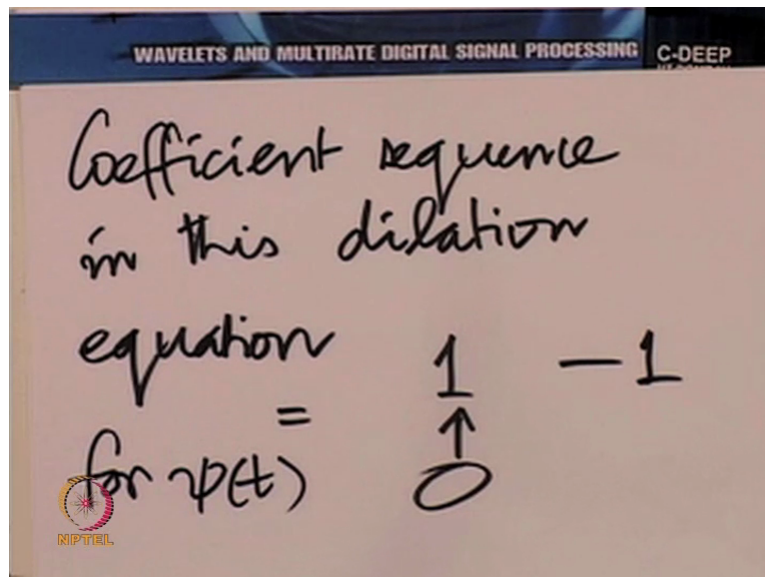 WAVELETS AND MULTIRATE DIGITAL SIGNAL PROCESSING C-DEEP
Coefficient sequence
in this dilation
equation = 1 -1
for ψ(t) ↑
0
NPTEL